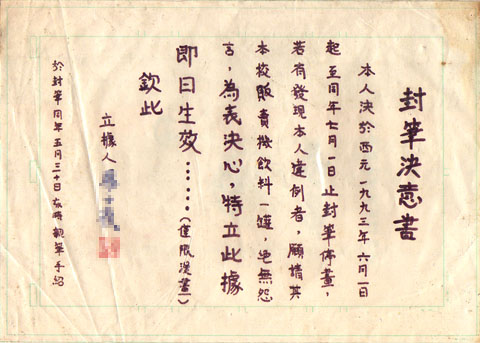 封筆決意書
本人決於西元一九九三年六月一日
起至同年七月一日止封筆停畫,
若有發現本人違例者,願請其
本校販賣機飲料一罐,無怨
言,為表決心,特立此據
即日生效……(僅限漫畫)
欽此
立據人
於封筆同年五月三十日 時親筆手